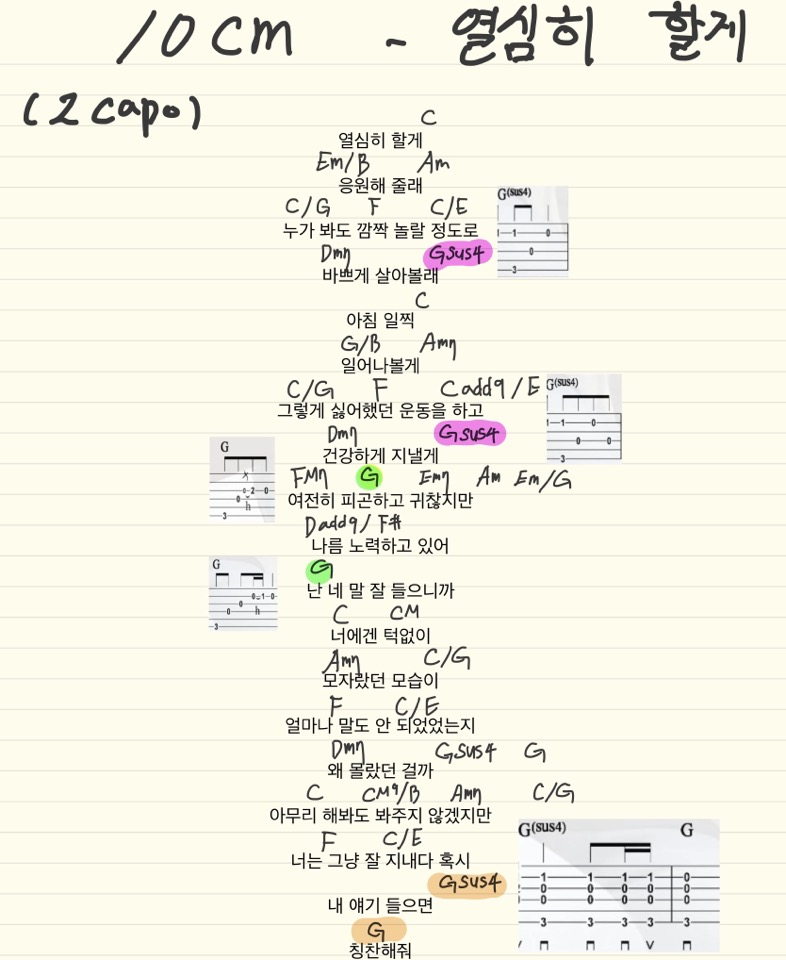 10cm - 열심히 할게
(2 capo)
C
열심히 할게
Em/B Am
응원해 줄래
C/G F C/E
누가 봐도 깜짝 놀랄 정도로
Dm7 Gsus4
바쁘게 살아볼래
G(sus4)
1 1 0
0
3
C
아침 일찍
G/B Am7
일어나볼게
C/G F Cadd9/E
그렇게 싫어했던 운동을 하고
Dm7 Gsus4
건강하게 지낼게
G(sus4)
1 1 0
0 0
3
FM7 G Em7 Am Em/G
여전히 피곤하고 귀찮지만
G
0 2 0
0 h
3
Dadd9/F#
나름 노력하고 있어
G
난 네 말 잘 들으니까
G
0 1 0
0
0 h
3
C CM
너에겐 턱없이
Am7 C/G
모자랐던 모습이
F C/E
얼마나 말도 안 되었었는지
Dm7 Gsus4 G
왜 몰랐던 걸까
C CM9/B Am7 C/G
아무리 해봐도 봐주지 않겠지만
F C/E
너는 그냥 잘 지내다 혹시
Gsus4
내 얘기 들으면
G
칭찬해줘
G(sus4) G
1 1 1 1 0
0 0 0 0 0
0 0 0 0 0
3 3 3 3 3